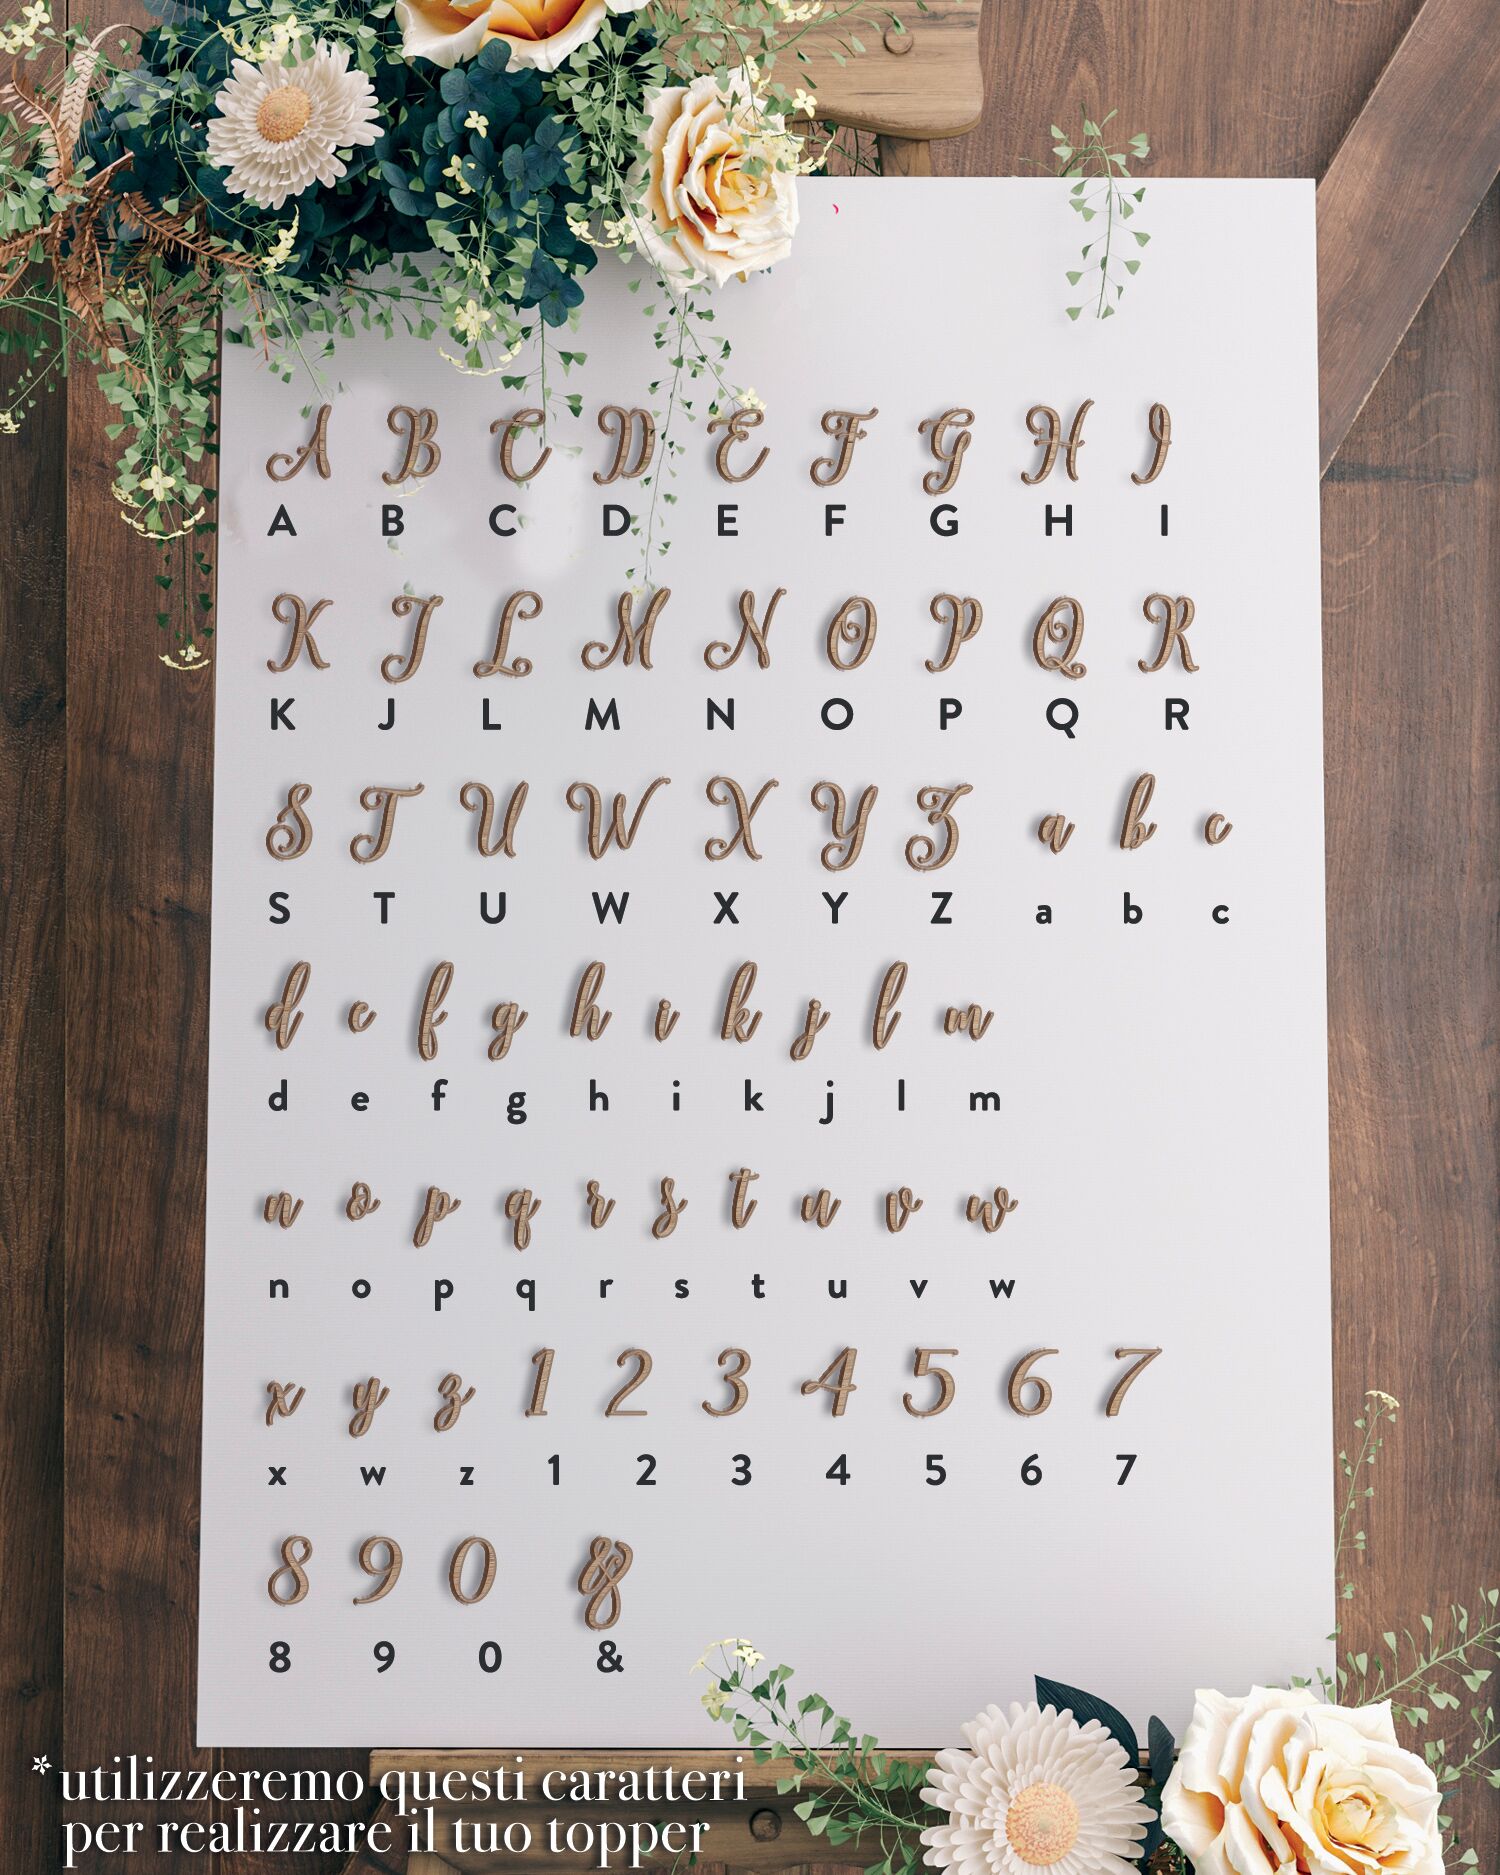 A B C D E F G H I
A B C D E F G H I
K J L M N O P Q R
K J L M N O P Q R
S T U W X Y Z a b c
S T U W X Y Z a b c
d e f g h i k j l m
d e f g h i k j l m
n o p q r s t u v w
n o p q r s t u v w
x y z 1 2 3 4 5 6 7
x w z 1 2 3 4 5 6 7
8 9 0 &
8 9 0 &
* utilizzeremo questi caratteri
per realizzare il tuo topper